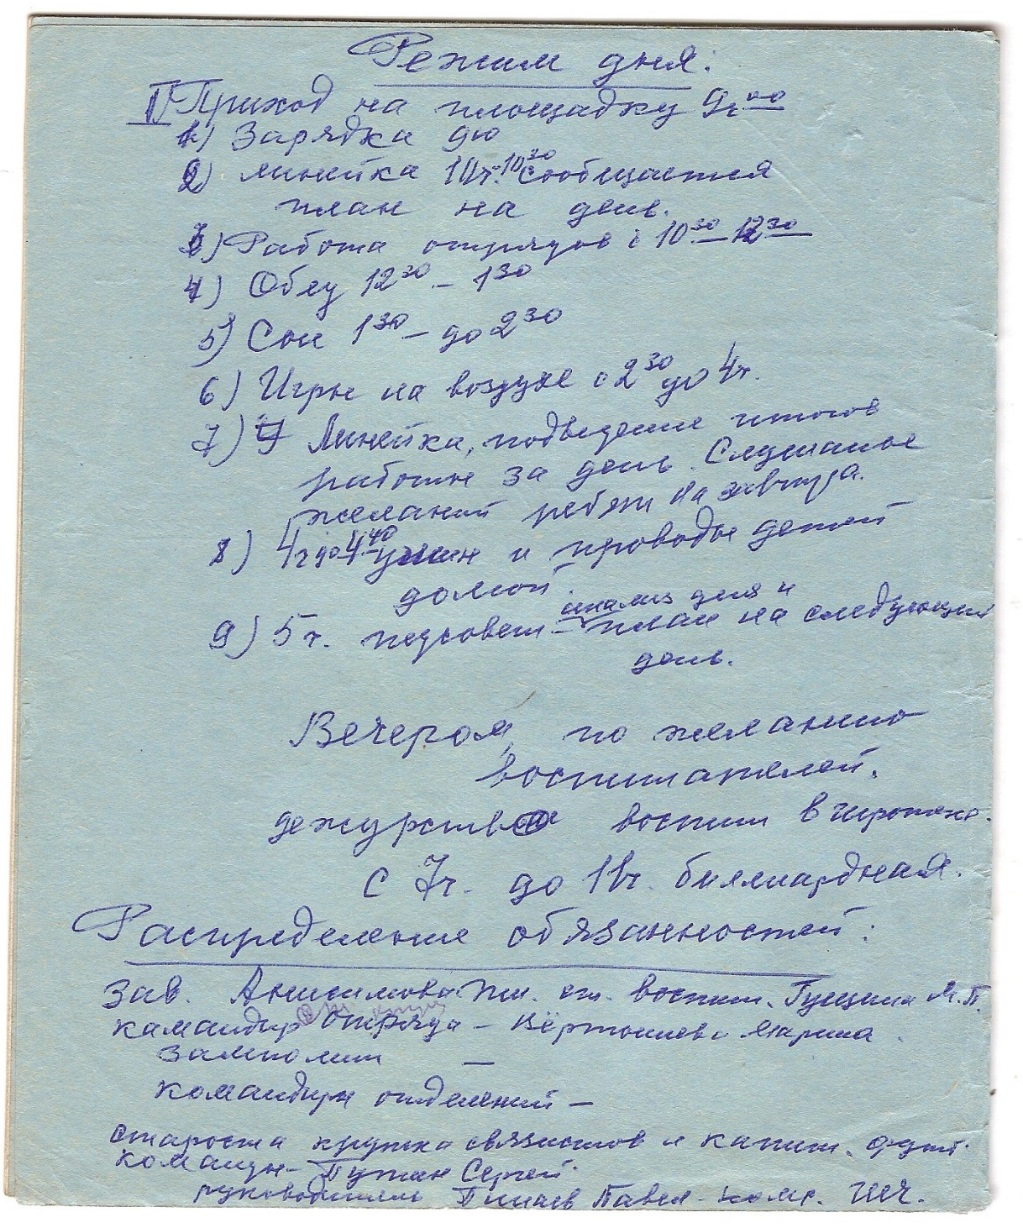 Режим дня:
I Приход на площадку 9ч 00
1) Зарядка 9 30
2) Линейка 10ч.-10 30 сообщается
план на день.
3) Работа отрядов с 10 30 – 12 30
4) Обед 12 30 – 1 30
5) Сон 1 30 – до 2 30
6) Игры на воздухе с 2 30 до 4ч.
7) Линейка, подведение итогов
работы за день. Слушание
желаний ребят на завтра.
8) 4ч до 4 40 ужин и проводы детей
домой.
анализ дня и
9) 5ч. педсовет – план на следующий
день.
Вечером, по желанию
воспитателей.
дежурство воспит в
с 7ч. до 11ч. биллиардная.
Распределение обязанностей:
зав. Анисимова ст. воспит. Гущина М.П.
камандир отряда – Марина
замполит –
командиры отделений –
староста кружка связистов и
команды – Сергей
руководитель Павел